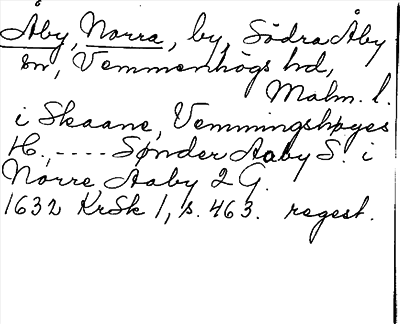 Åby, Norra, by, Södra Åby
sn, Vemmenhögs hd,
Malm. l.
i Skaane, Vemmingshøges
H., ---- Sønder Aaby S. i
Norre Aaby 2 G.
1632 KrSk 1, s. 463. regest.